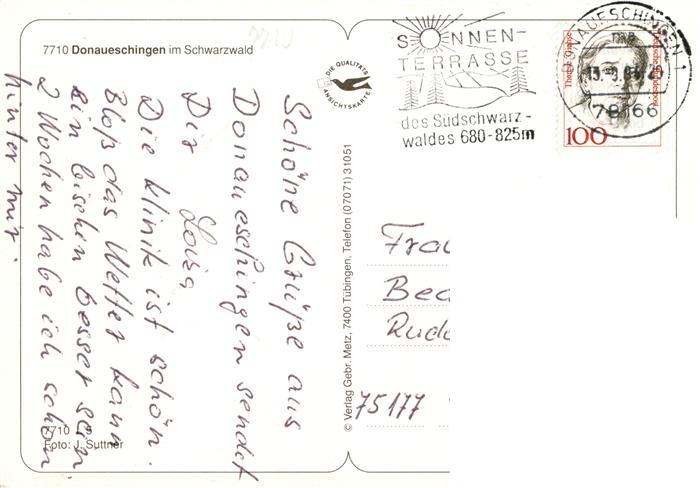 7710
7710 Donaueschingen im Schwarzwald
DIE QUALITÄTS
ANSICHTSKARTE
SONNEN-
TERRASSE
des Südschwarz-
waldes 680-825m
DONAUESCHINGEN 1
78166
100
Schöne Grüße aus
Donaueschingen sendet
Dir Loisa
Die Klinik ist schön.
Bloß das Wetter kann
ein bischen besser sein.
2 Wochen habe ich schon
hinter mir.
© Verlag Gebr. Metz, 7400 Tübingen, Telefon (07071) 31051
Frau
Bec
Rudo
75177
7710 J 5
Foto: J. Suttner